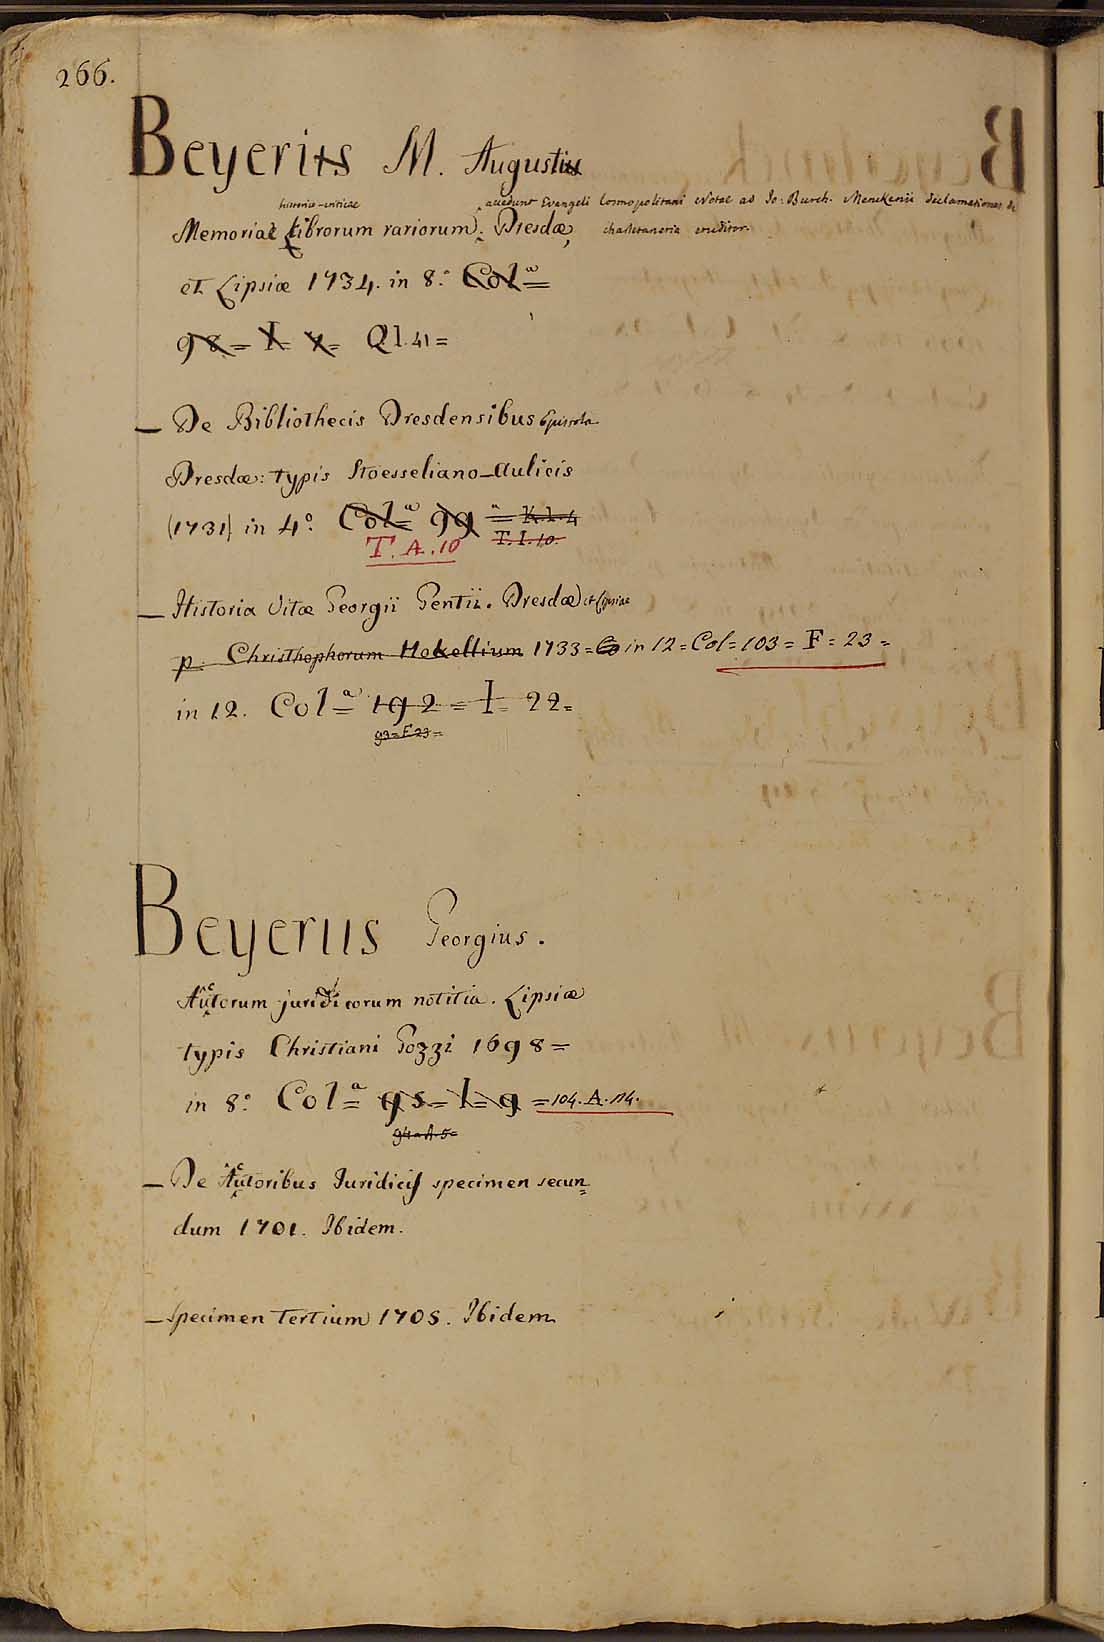 266.
Beyerus M. Augustus
historico-criticae
accedunt Evangeli Cosmopolitani Notae ad Jo: Burch. Menckenii declamationes de
Memoriae Librorum rariorum. Dresdæ, charlataneria eruditor.
et Lipsiæ 1734. in 8.° Col.ª=
98= I= X= Q1.41=
_ De Bibliothecis Dresdensibus Epistola
Dresdæ: typis Stoesseliano-Aulicis
(1731) in 4.° Col.ª= 99 = K.1.4
T.A.10 T.I.10.
_ Historia Vitæ Georgii Gentii. Dresdæ et Lipsiae
p: Christhophorum Hekellium 1733= in 12=Col=103= F=23=
in 12. Col.ª= 192= I= 22=
93=F.23=
Beyerus Georgius.
Auctorum juridicorum notitia. Lipsiæ
typis Christiani Gozzi 1698=
in 8.° Col.ª= 95= I= 9 =104.A.114.
94=A.5=
_ De Auctoribus Juridicis specimen secun=
dum 1701. Ibidem.
_ Specimen Tertium 1705. Ibidem